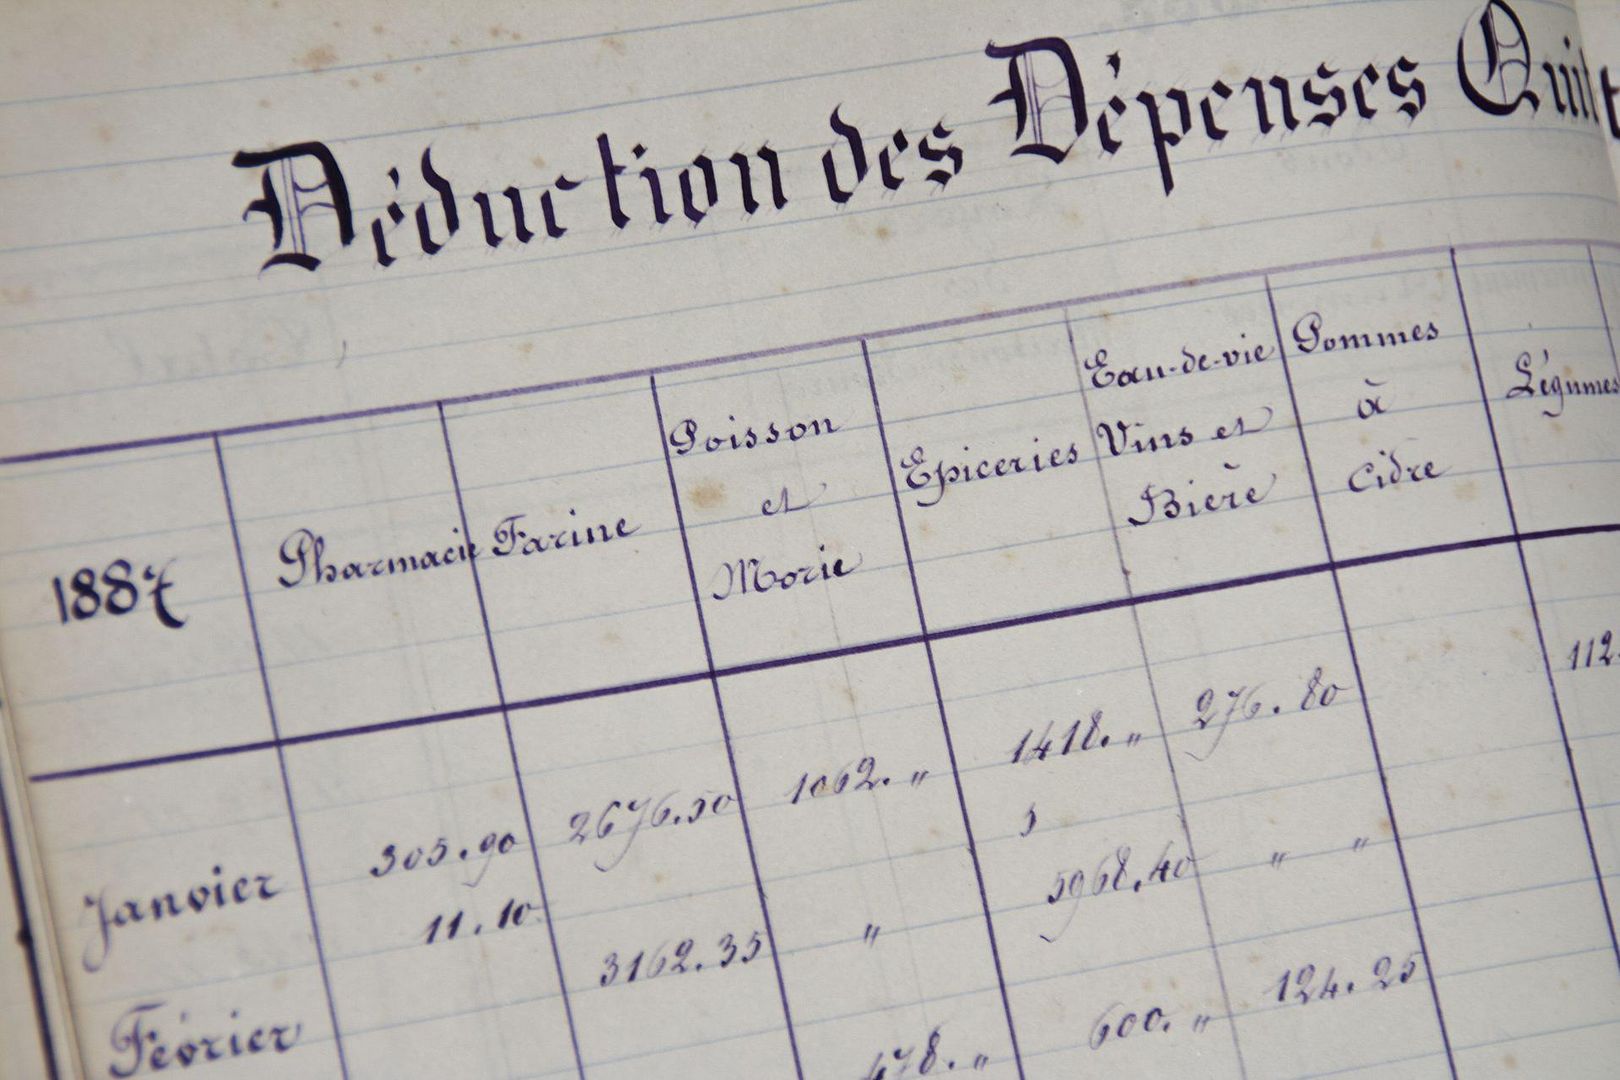 Déduction des Dépenses
1887
Pharmacie
Farine
Poisson
et
Morie
Epiceries
Eau-de-vie
Vins et
Bière
Pommes
à
Cidre
Légumes
Janvier
305.90
2676.50
1062. "
1418. "
276.80
112.
Février
11.10
3162.35
"
5968.40
" "
478. "
600. "
124.25